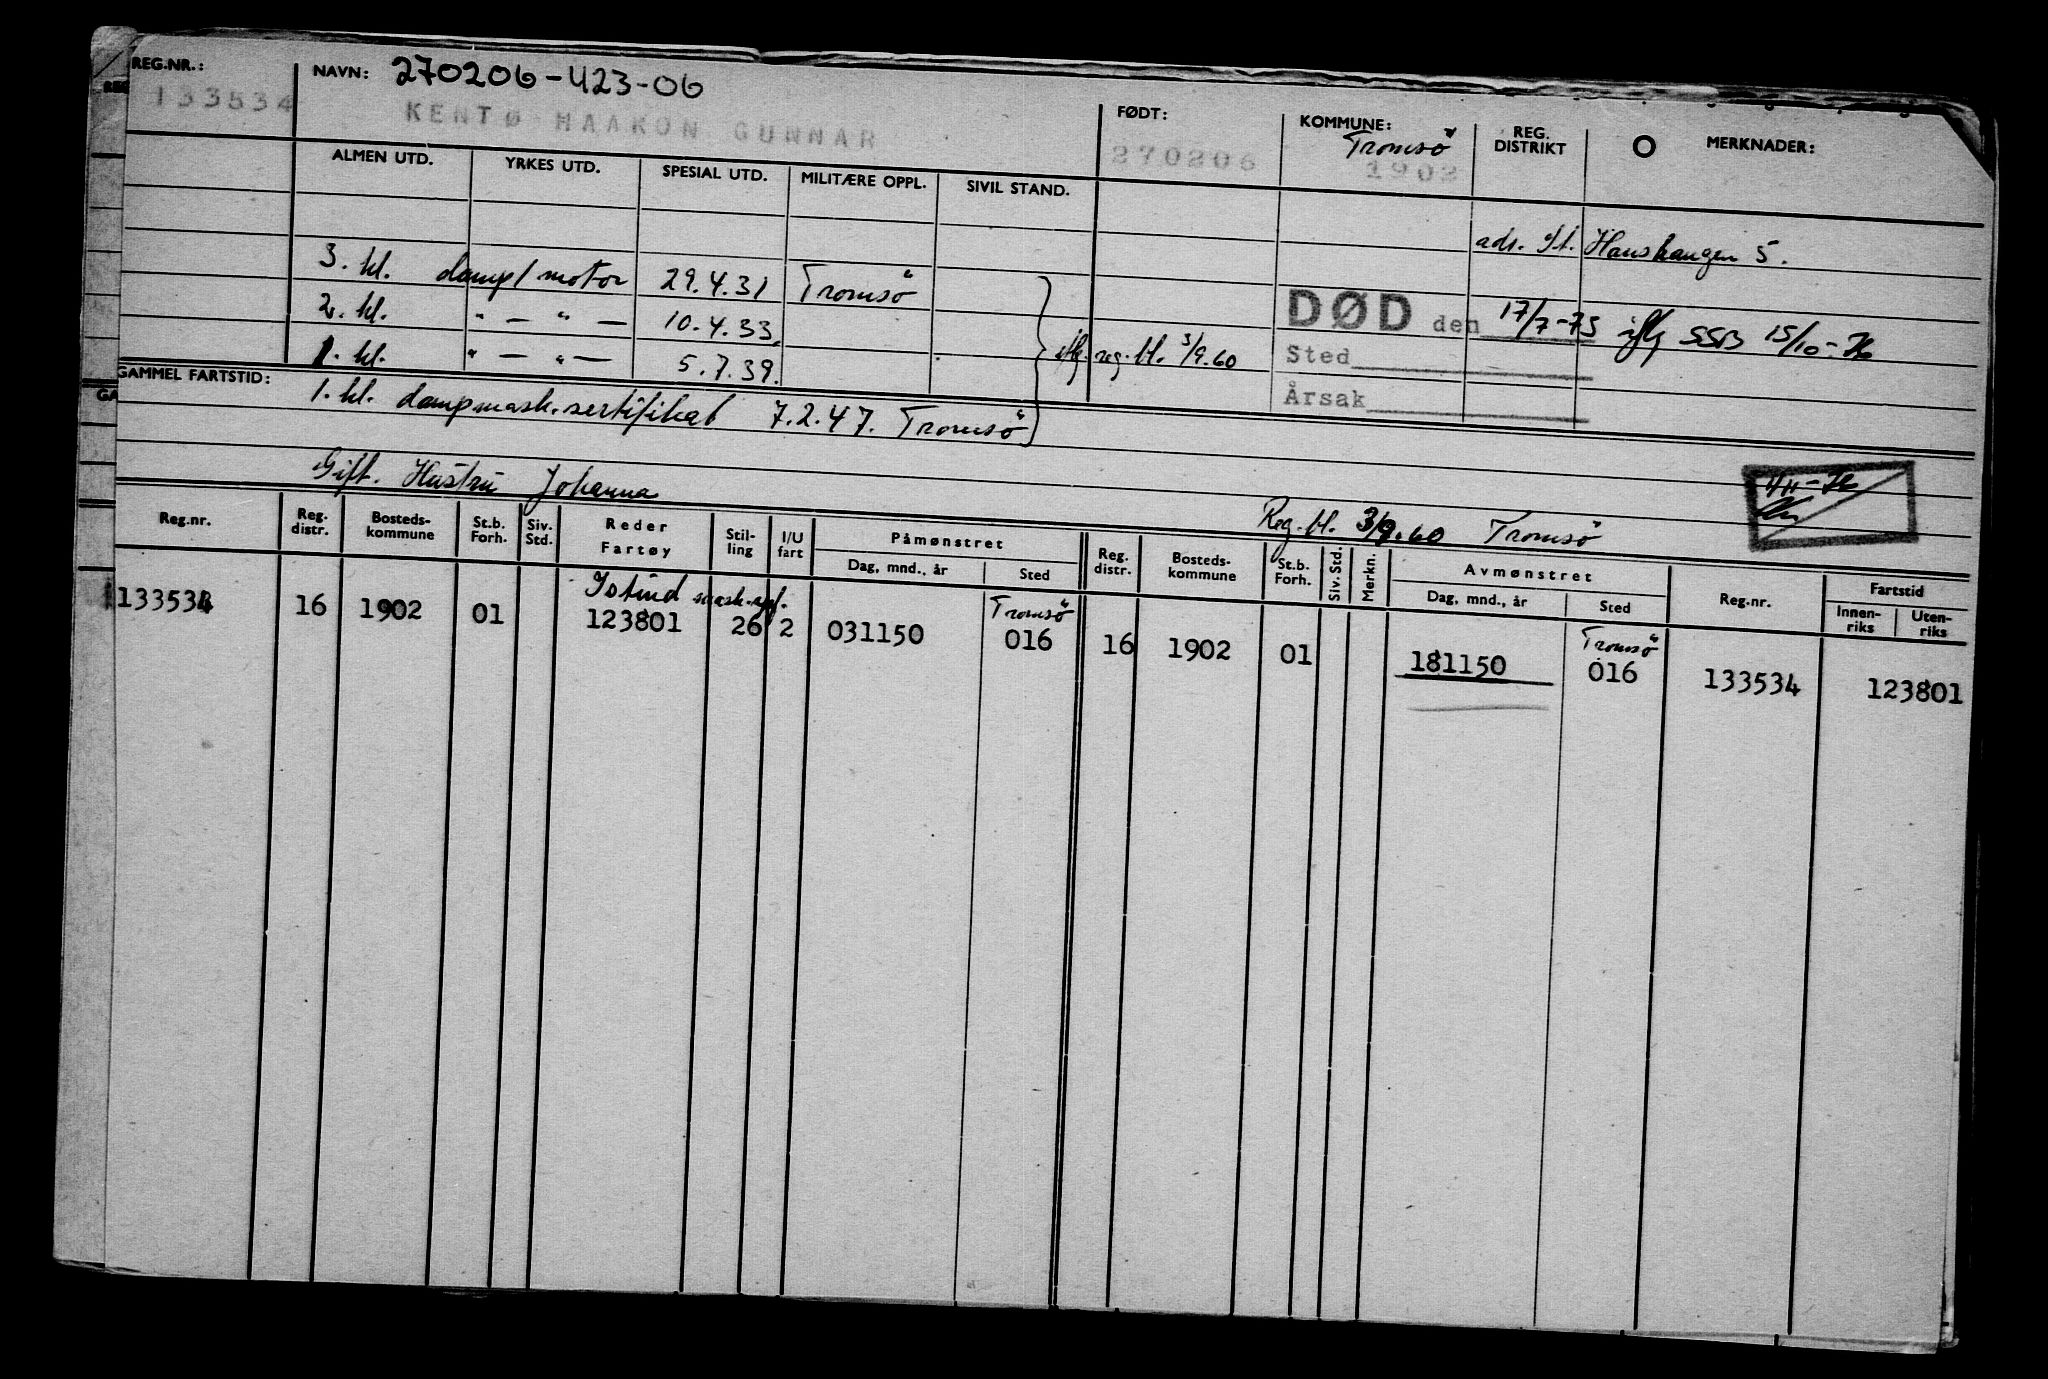 REG.NR.: NAVN: 270206-423-06
133534 KENTØ HAAKON GUNNAR FØDT: 270206 KOMMUNE: Tromsö 1902 REG. DISTRIKT MERKNADER:
ALMEN UTD. YRKES UTD. SPESIAL UTD. MILITÆRE OPPL. SIVIL STAND.
adr. st. Hanshaugen 5.
3. kl. damp/motor 29.4.31 Tromsö
2. kl. " — " — 10.4.33.
1. kl. " — " — 5.7.39. iflg. reg. bl. 3/9.60
DØD den 17/7-75 iflg SSB 15/10-76
Sted
Årsak
GAMMEL FARTSTID: 1. kl. dampmask.sertifikat 7.2.47. Tromsö
Gift. Hustru Johanna
Reg. bl. 3/9.60 Tromsö
Reg.nr. Reg. distr. Bosteds-kommune St.b. Forh. Siv. Std. Reder Fartøy Stil-ling I/U fart Påmønstret Dag, mnd., år Sted Reg. distr. Bosteds-kommune St.b. Forh. Siv. Std. Merkn. Avmønstret Dag, mnd., år Sted Reg.nr. Fartstid Innen-riks Uten-riks
Istind Tromsö Tromsö
133534 16 1902 01 123801 26 2 031150 016 16 1902 01 181150 016 133534 123801